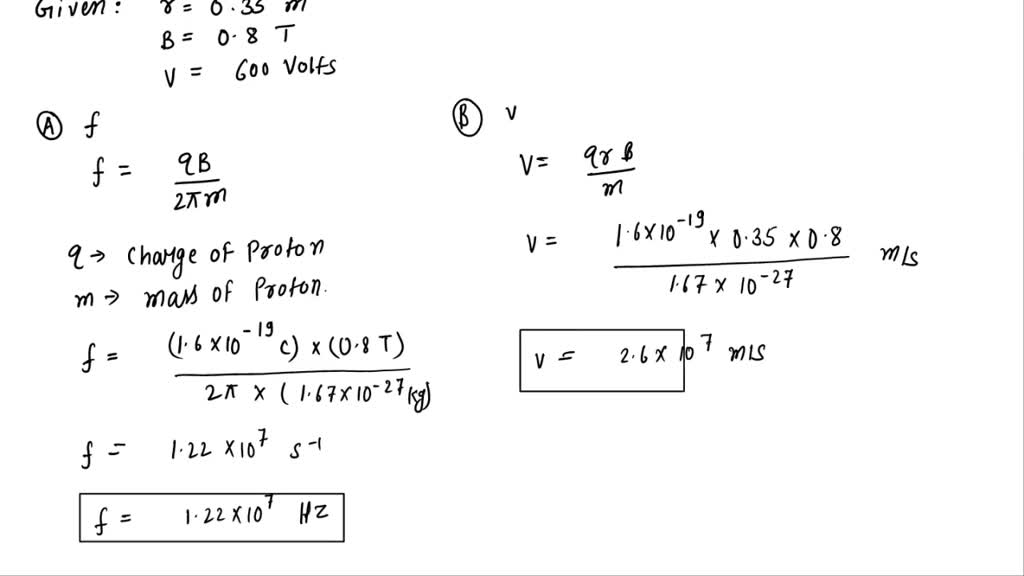 Given: r = 0.35 m
B = 0.8 T
V = 600 Volts
Ⓐ f
f = qB / 2πm
q → charge of Proton
m → mass of Proton.
f = (1.6×10⁻¹⁹ C) × (0.8 T) / 2π × (1.67×10⁻²⁷ kg)
f = 1.22 × 10⁷ s⁻¹
f = 1.22×10⁷ Hz
Ⓑ v
V = qrB / m
v = 1.6×10⁻¹⁹ × 0.35 × 0.8 / 1.67 × 10⁻²⁷ m/s
v = 2.6 × 10⁷ m/s